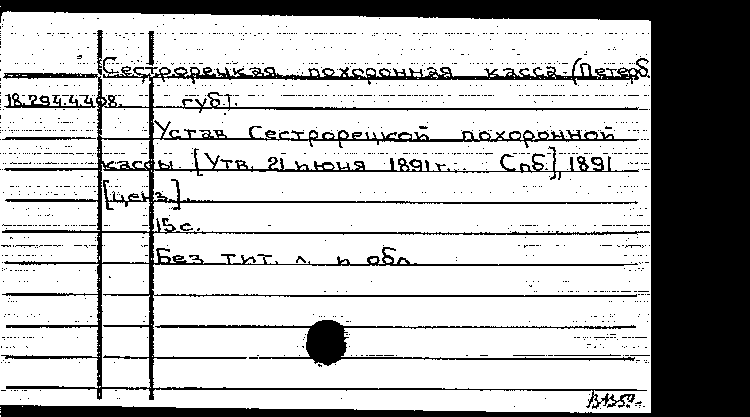 Сестрорецкая похоронная касса (Петерб.
18.294.4.408. губ.).
Устав Сестрорецкой похоронной
кассы. [Утв. 21 июня 1891 г. Спб.], 1891
[ценз.].
15 с.
Без тит. л. и обл.